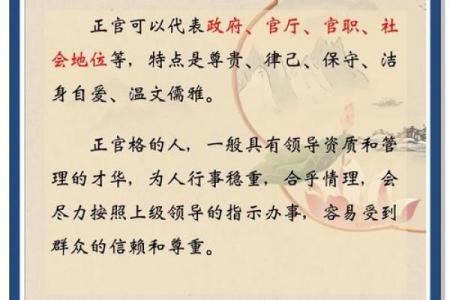 正官可以代表政府、官厅、官职、社
会地位等，特点是尊贵、律己、保守、洁
身自爱、温文儒雅。
正官格的人，一般具有领导资质和管
理的才华，为人行事稳重，合乎情理，会
尽力按照上级领导的指示办事，容易受到
群众的信赖和尊重。